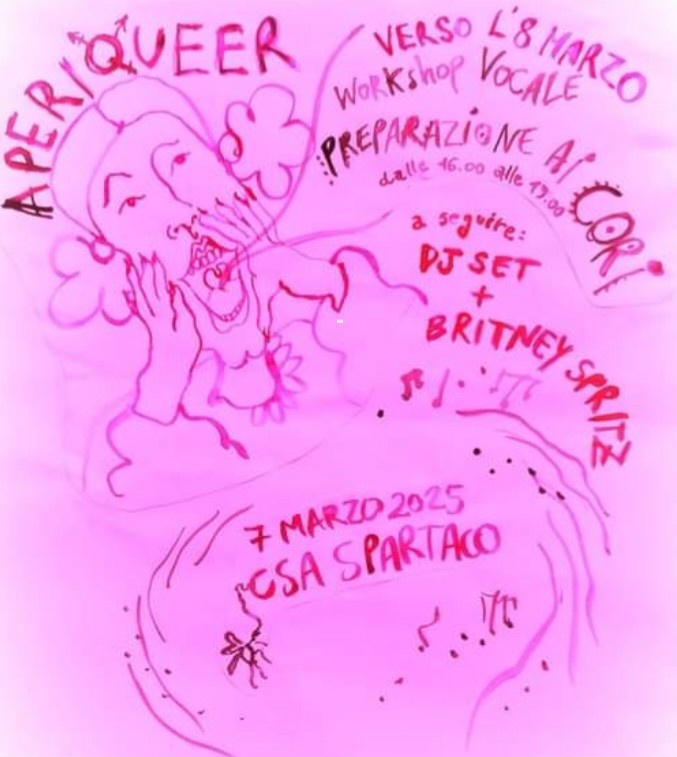 APERIQUEER
VERSO L'8 MARZO
WORKShop VOCALE
PREPARAZiONE Ai CORi
dalle 16.00 alle 19.00
a seguire:
DJ SET
+
BRITNEY SPRITZ
7 MARZO 2025
CSA SPARTACO